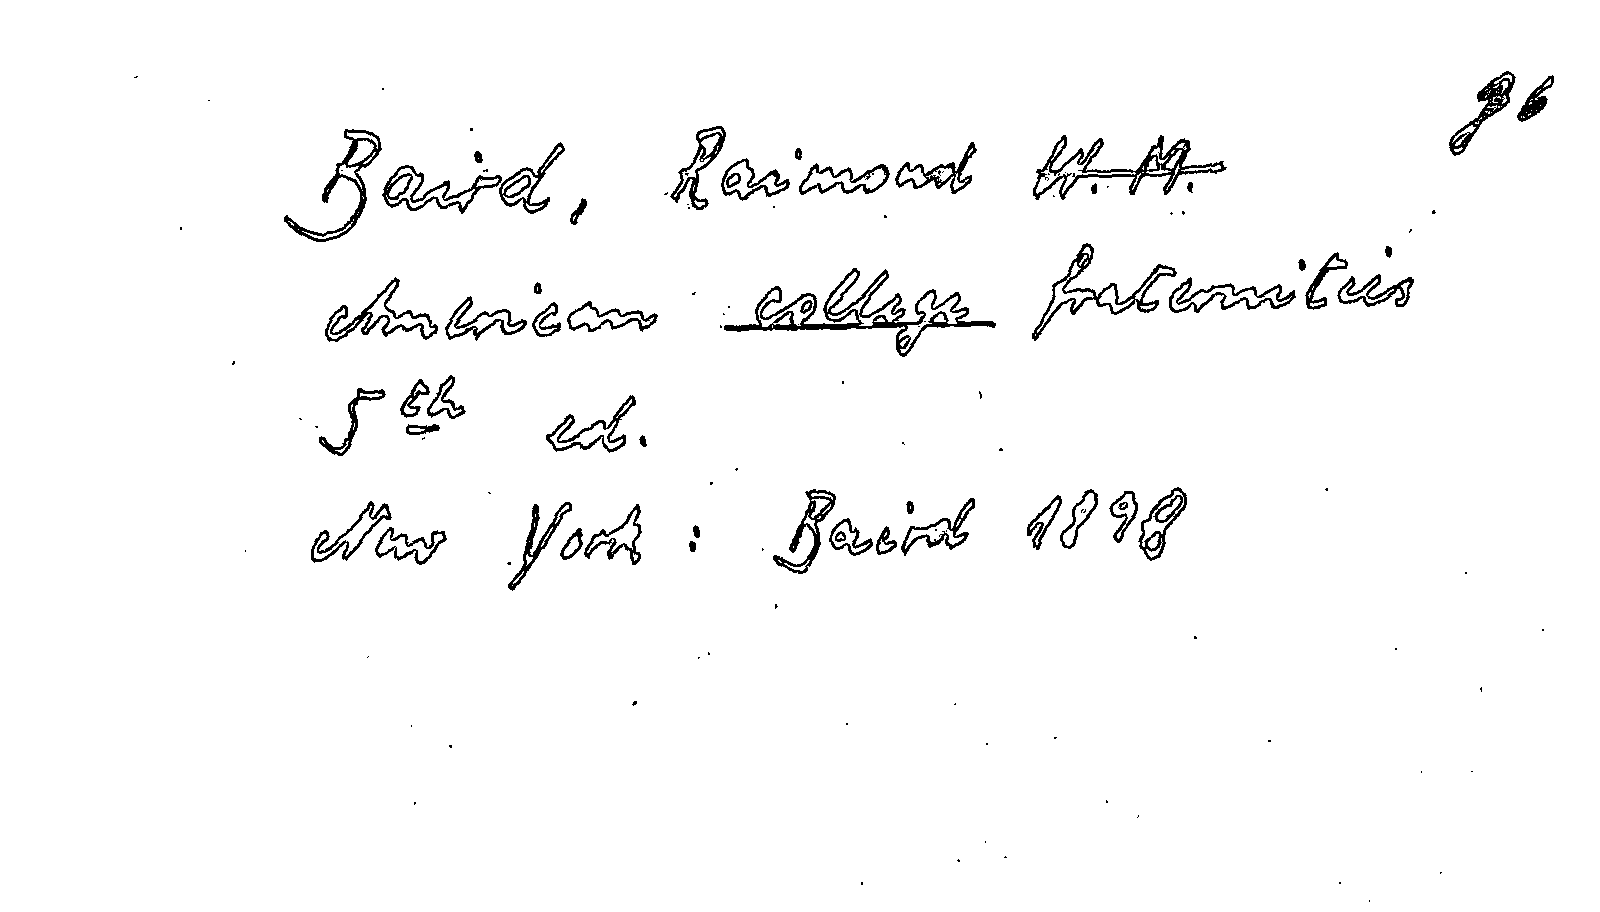 Baird, Raimond W. M.
American college fraternities
5th ed.
New York : Baird 1898